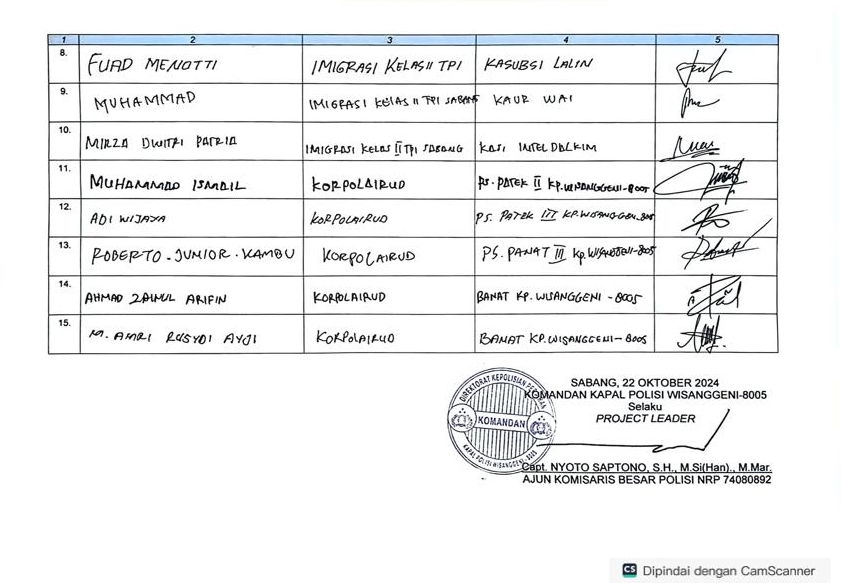 1 2 3 4 5
8. FUAD MENOTTI IMIGRASI KELAS II TPI KASUBSI LALIN
9. MUHAMMAD IMIGRASI KELAS II TPI SABANG KAUR WAI
10. MIRZA DWITRI PATRIA IMIGRASI KELAS II TPI SABANG KASI INTELDAKIM
11. MUHAMMAD ISMAIL KORPOLAIRUD PS. PATEK II KP. WISANGGENI-8005
12. ADI WIJAYA KORPOLAIRUD PS. PATEK III KP. WISANGGENI-8005
13. ROBERTO-JUNIOR-KAMBU KORPOLAIRUD PS. PANAT III KP. WISANGGENI-8005
14. AHMAD ZAINUL ARIFIN KORPOLAIRUD BANAT KP. WISANGGENI-8005
15. M. AMRI RUSYDI AYJI KORPOLAIRUD BANAT KP. WISANGGENI-8005
SABANG, 22 OKTOBER 2024
KOMANDAN KAPAL POLISI WISANGGENI-8005
Selaku
PROJECT LEADER
DIREKTORAT KEPOLISIAN PERAIRAN
KOMANDAN
KAPAL POLISI WISANGGENI-8005
Capt. NYOTO SAPTONO, S.H., M.Si(Han)., M.Mar.
AJUN KOMISARIS BESAR POLISI NRP 74080892
CS Dipindai dengan CamScanner